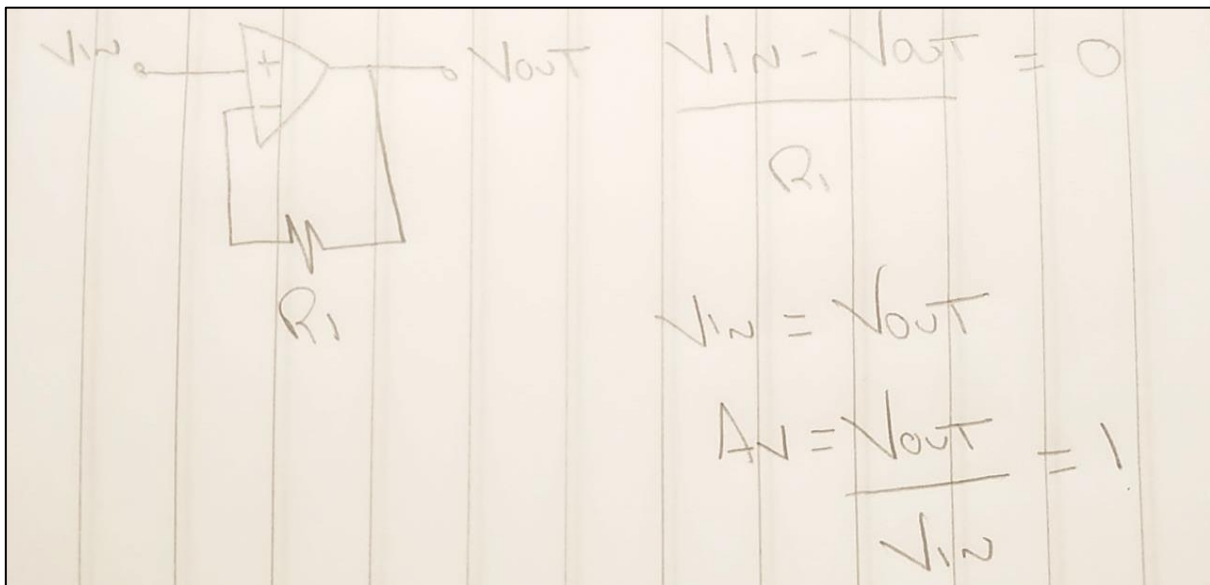 VIN
+
-
VOUT
R1
VIN - VOUT = 0
R1
VIN = VOUT
AV = VOUT = 1
VIN